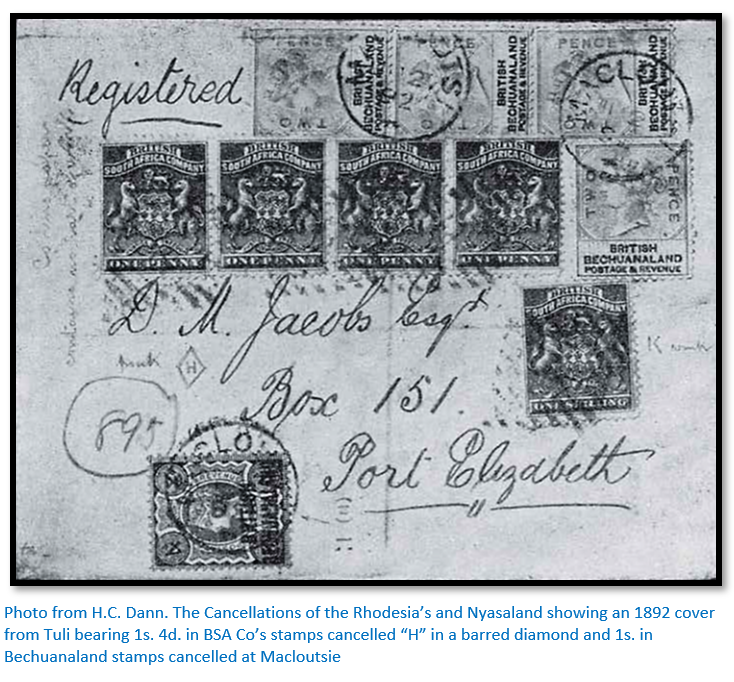 Registered
PENCE PENCE PENCE
TWO TWO TWO
BRITISH BECHUANALAND POSTAGE & REVENUE
BRITISH BECHUANALAND POSTAGE & REVENUE
BRITISH BECHUANALAND POSTAGE & REVENUE
BRITISH BRITISH BRITISH BRITISH
SOUTH AFRICA COMPANY SOUTH AFRICA COMPANY SOUTH AFRICA COMPANY SOUTH AFRICA COMPANY
ONE PENNY ONE PENNY ONE PENNY ONE PENNY
TWO PENCE
BRITISH
BECHUANALAND
POSTAGE & REVENUE
D. M. Jacobs Esqr
BRITISH
SOUTH AFRICA COMPANY
ONE SHILLING
H
Box 151.
895
Port Elizabeth
CLO
Photo from H.C. Dann. The Cancellations of the Rhodesia's and Nyasaland showing an 1892 cover
from Tuli bearing 1s. 4d. in BSA Co's stamps cancelled “H” in a barred diamond and 1s. in
Bechuanaland stamps cancelled at Macloutsie